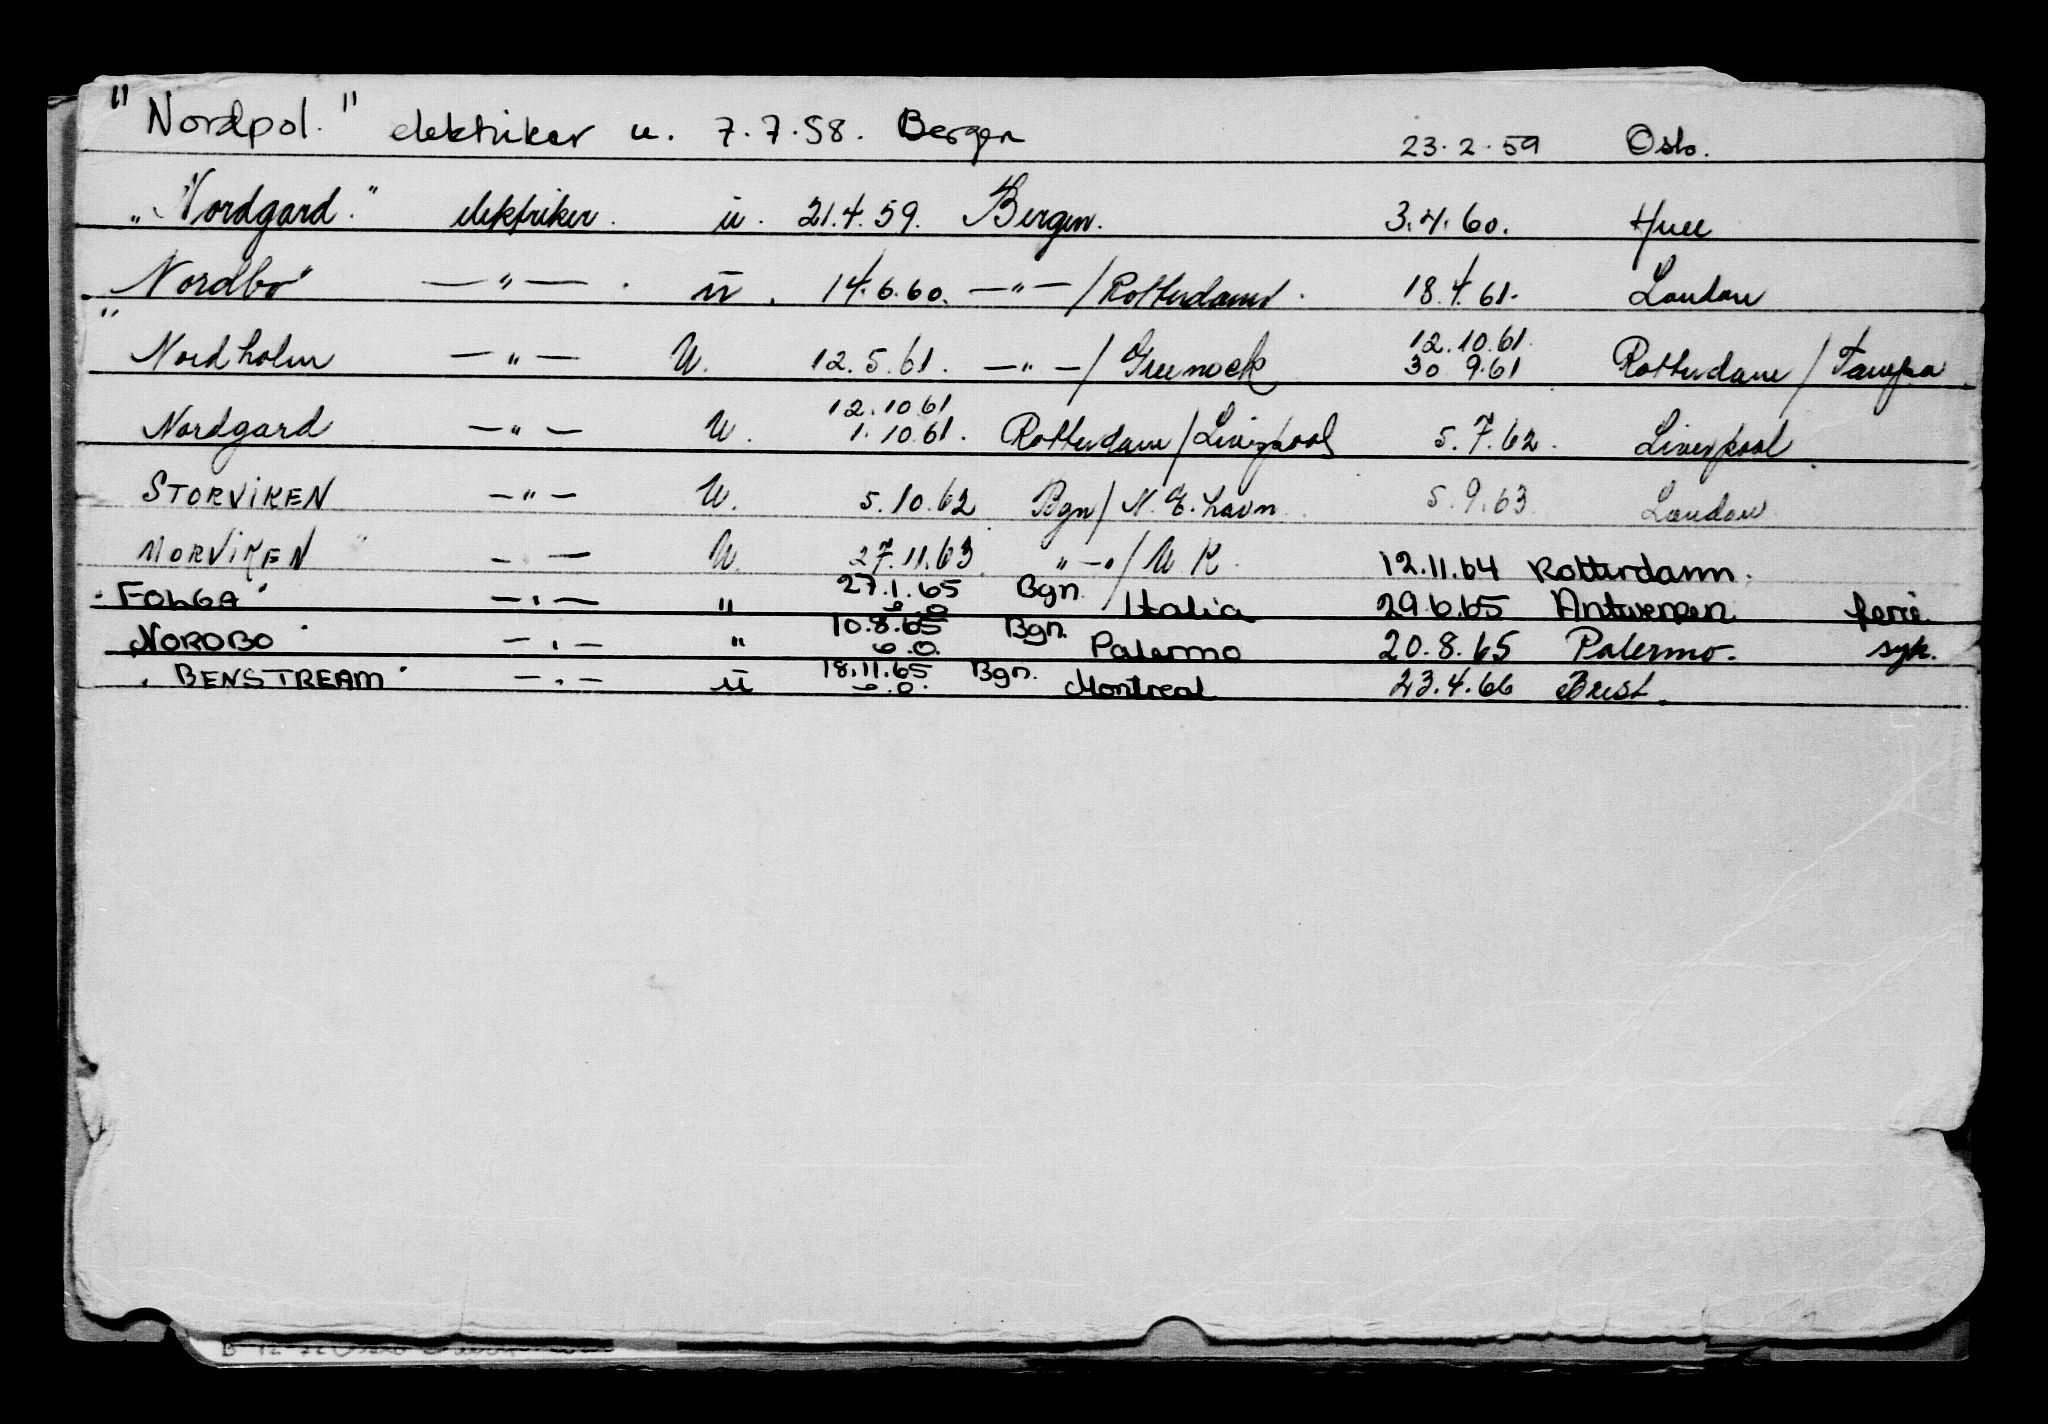 "Nordpol." elektriker u. 7.7.58. Bergen 23.2.59 Oslo.
"Nordgard." elektriker. u. 21.4.59. Bergen. 3.4.60. Hull
Nordbo" — " — . u. 14.6.60. — " — / Rotterdam. 18.4.61. London
12.10.61.
"Nordholm — " — U. 12.5.61. — " — / Greenock 30 9.61 Rotterdam / Tampa
12.10 61
Nordgard — " — U. 1.10.61. Rotterdam / Liverpool 5.7.62. Liverpool.
STORVIKEN — " — U. 5.10.62 Bgn / N.E. havn 5.9.63 London
MORVIKEN " — . — U. 27.11.63. " — . / U K. 12.11.64 Rotterdam.
27.1.65 Bgn.
"FOLGA" — . — " / Italia 29.6.65 Antwerpen ferie
10.8.65 Bgn.
NORDBO — . — " Palermo 20.8.65 Palermo. syk.
18.11.65 Bgn.
"BENSTREAM" — . — u Montreal 23.4.66 Brest.